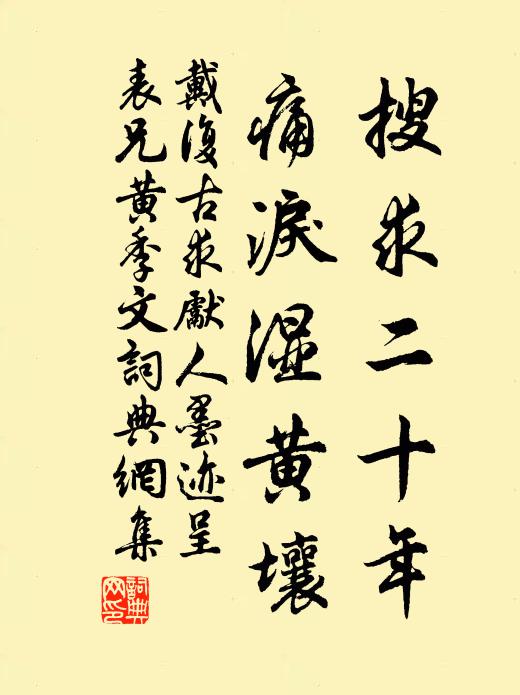 搜求二十年
痛淚湿黄壤
戴復古求獻人墨迹呈
表兄黄季文詞典網集
詞典网印